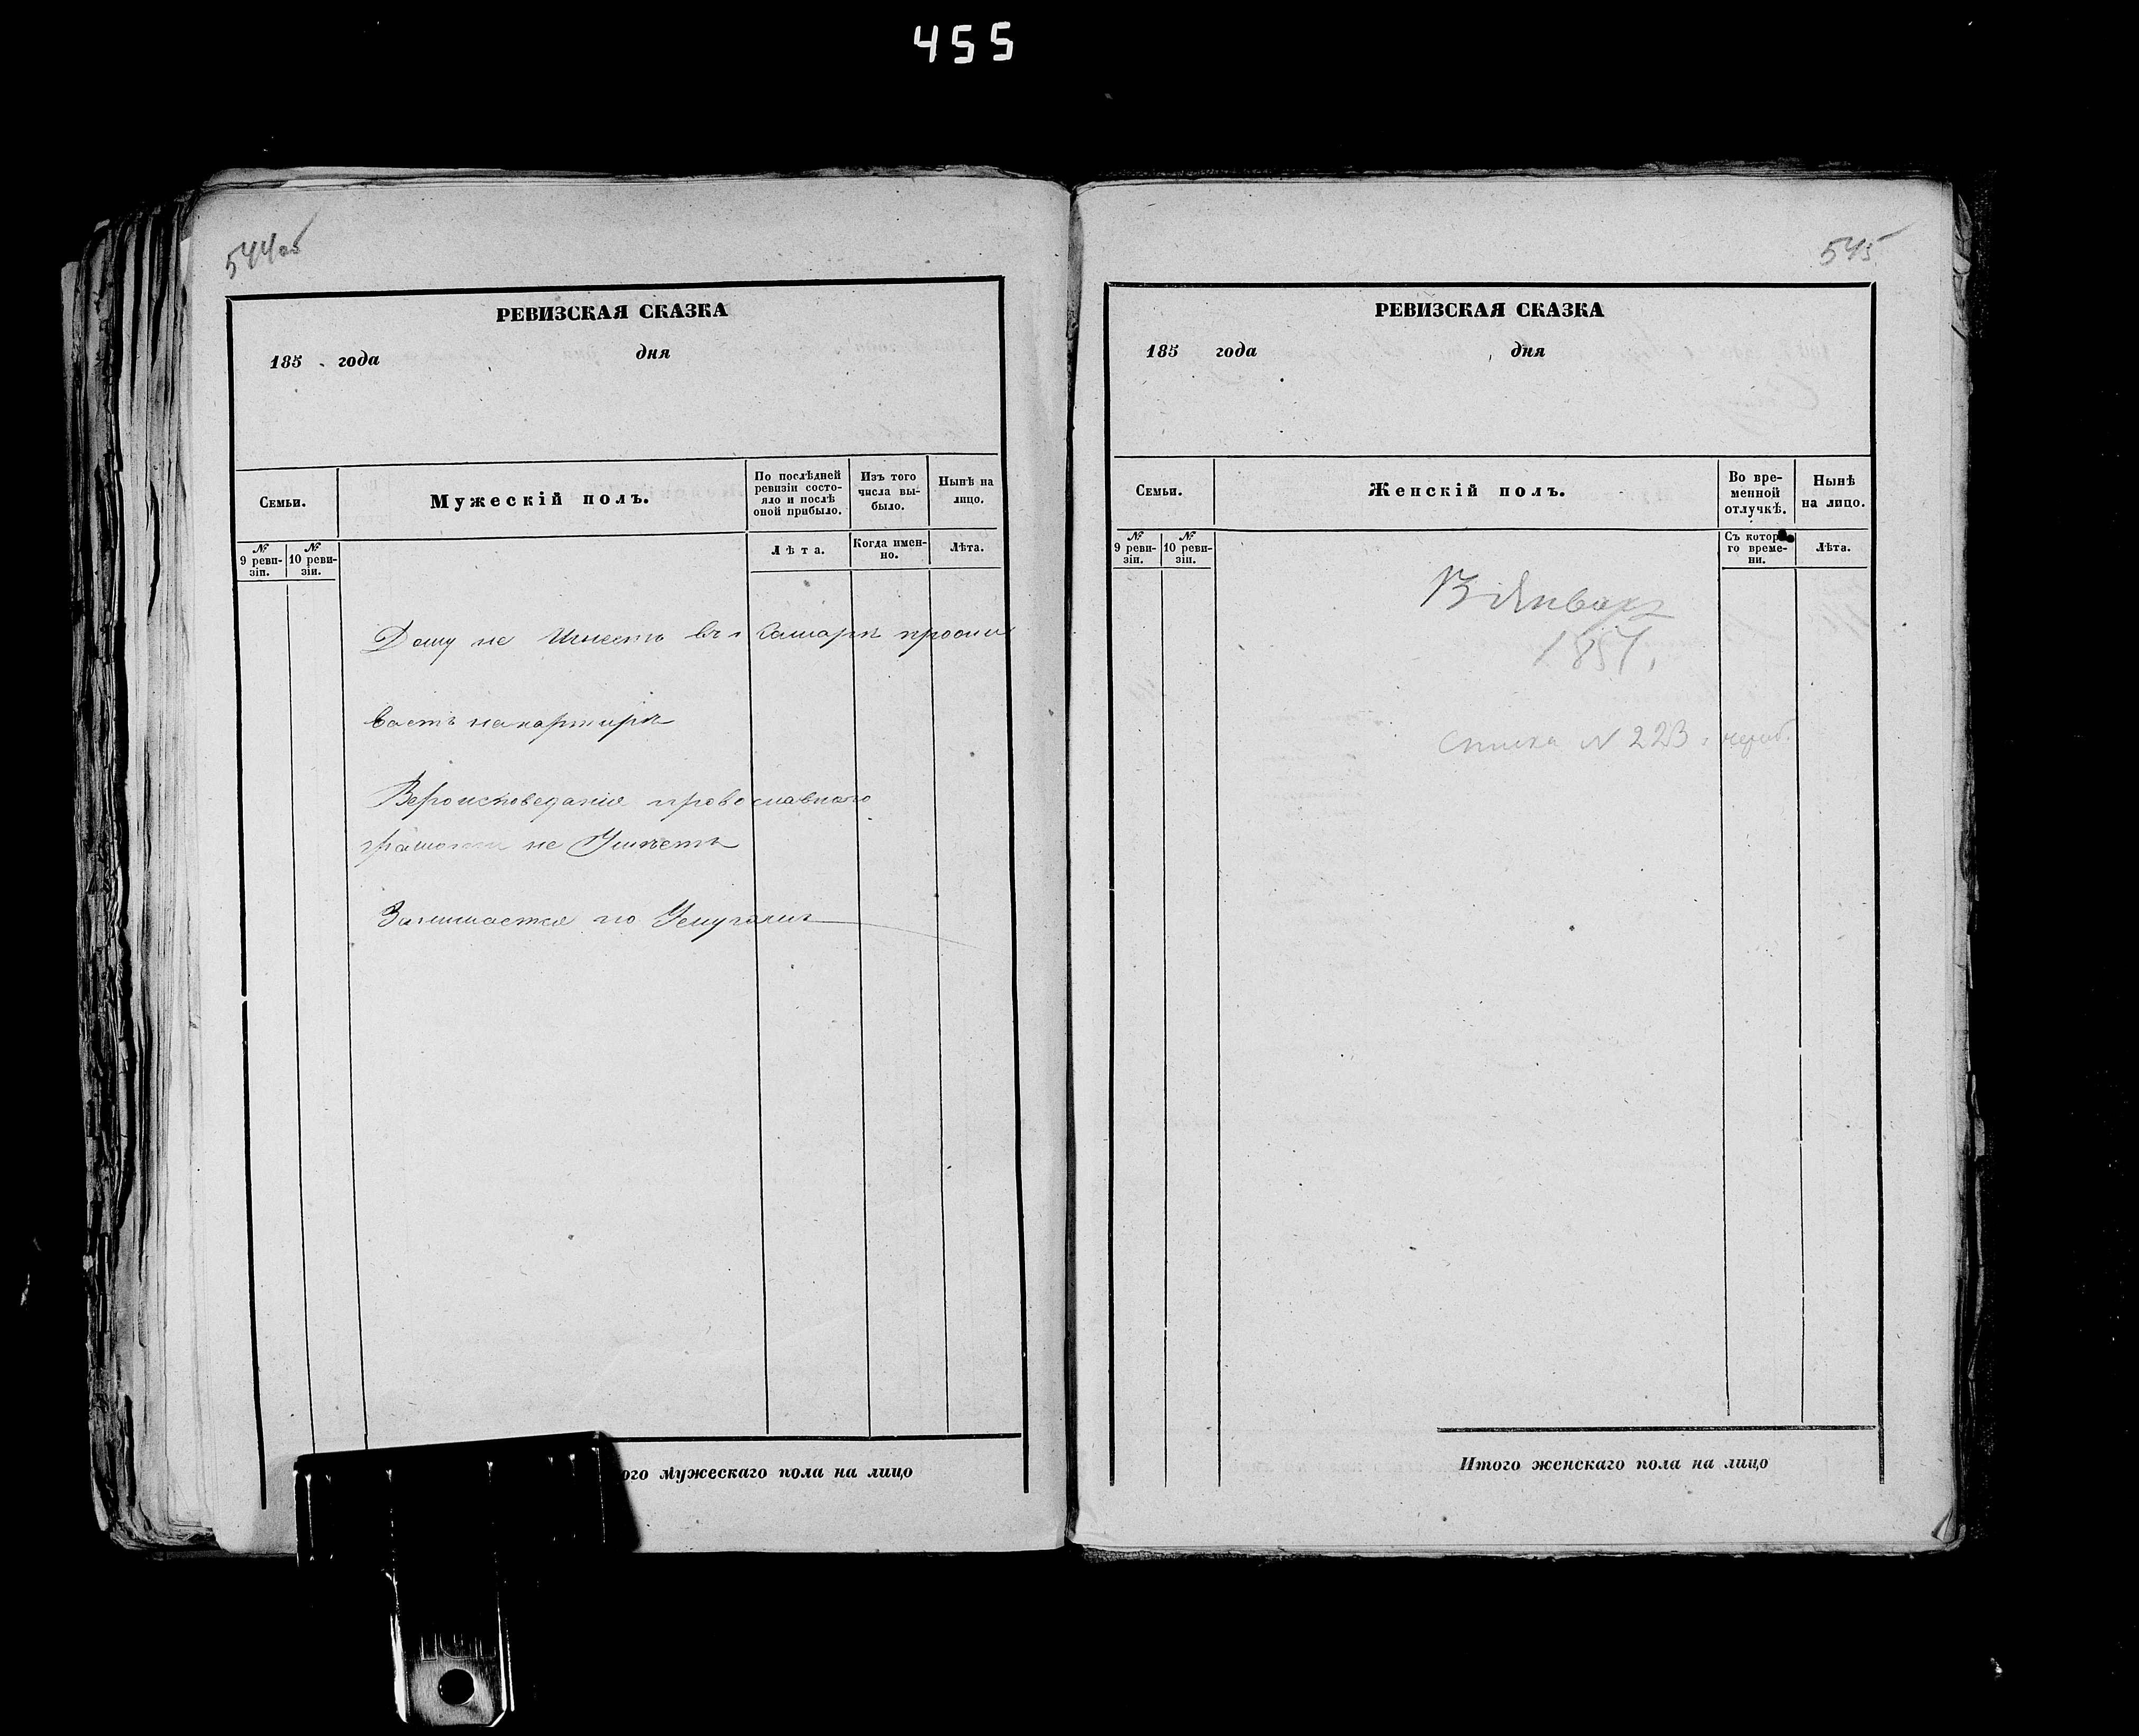 455
544 об
РЕВИЗСКАЯ СКАЗКА
185 года дня
Семьи.
Мужескій полъ.
По послѣдней ревизіи состояло и послѣ оной прибыло.
Изъ того числа выбыло.
Нынѣ на лицо.
№ 9 ревизіи.
№ 10 ревизіи.
Лѣта.
Когда именно.
Лѣта.
Дому не Имеетъ въ г Самарѣ прожи
ваетъ наквартирѣ
Вероисповеданія провославнаго
грамоти не Умѣетъ
Занимается по
ого мужескаго пола на лицо
545
РЕВИЗСКАЯ СКАЗКА
185 года дня
Семьи.
Женскій полъ.
Во временной отлучкѣ.
Нынѣ на лицо.
№ 9 ревизіи.
№ 10 ревизіи.
Съ котораго времени.
Лѣта.
13 Января
1857.
списка N 223
Итого женскаго пола на лицо